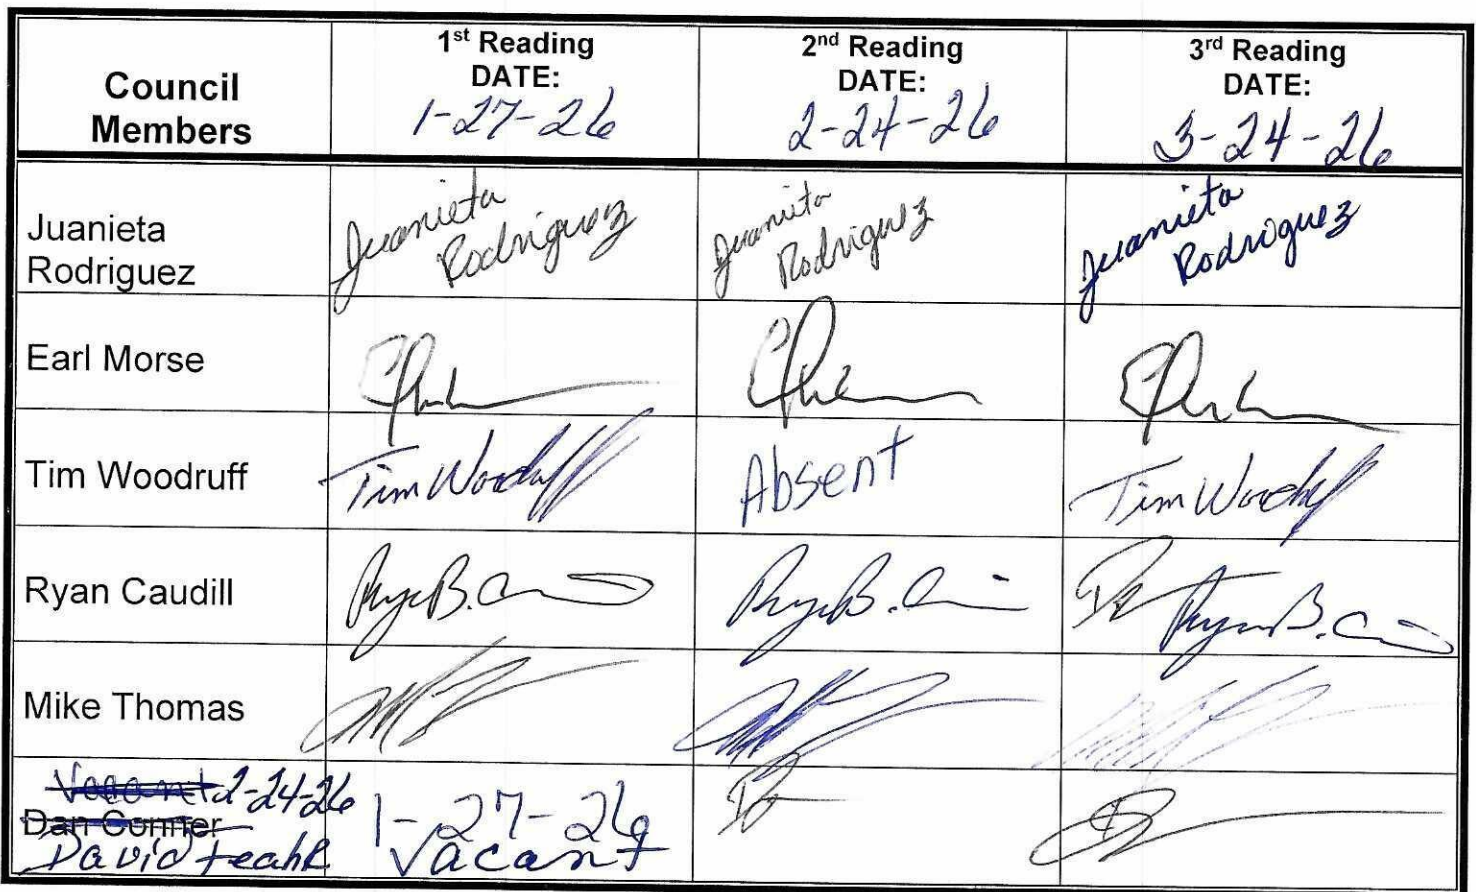 Council
Members
1st Reading
DATE:
1-27-26
2nd Reading
DATE:
2-24-26
3rd Reading
DATE:
3-24-26
Juanieta
Rodriguez
Juanieta
Rodriguez
Juanieta
Rodriguez
Juanieta
Rodriguez
Earl Morse
Tim Woodruff
Tim Woodruff
Absent
Tim Woodruff
Ryan Caudill
Mike Thomas
Vacant 2-24-26
Dan Conner
David
1-27-26
Vacant